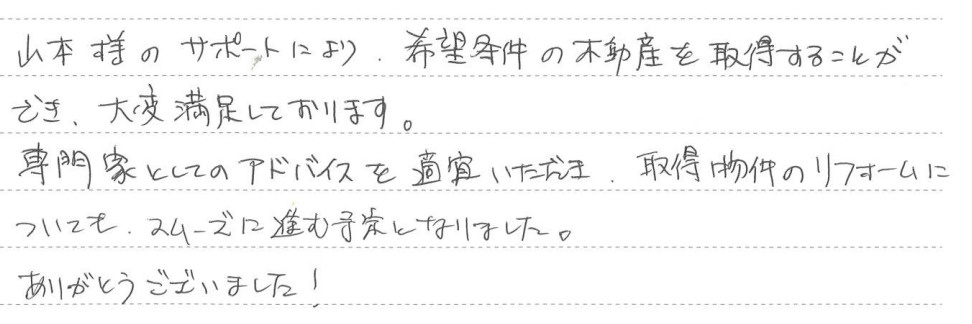 山本様のサポートにより、希望条件の不動産を取得することが
でき、大変満足しております。
専門家としてのアドバイスを適宜いただき、取得物件のリフォームに
ついても、スムーズに進む予定となりました。
ありがとうございました!